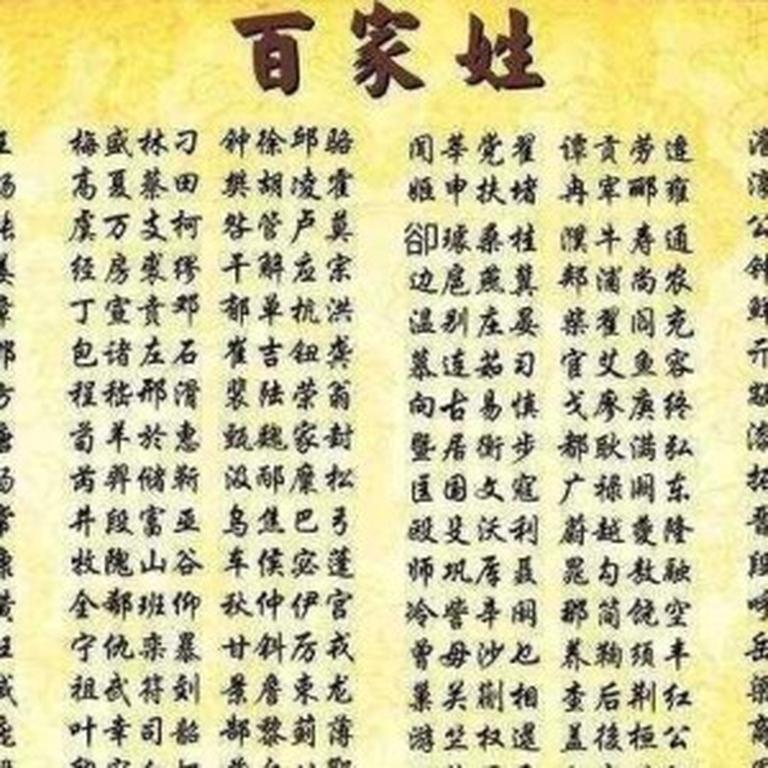 百家姓
梅盛林刁 钟徐邱骆
高夏蔡田 樊胡凌霍
虞万支柯 昝管卢莫
经房裘缪 干解应宗
丁宣贲邓 郁单杭洪
包诸左石 崔吉钮龚
程嵇邢滑 裴陆荣翁
荀羊於惠 甄魏家封
芮羿储靳 汲邴糜松
井段富巫 乌焦巴弓
牧隗山谷 车侯宓蓬
全郗班仰 秋仲伊宫
宁仇栾暴 甘斜厉戎
祖武符刘 景詹束龙
叶幸司韶 郜黎蓟薄
闻莘党翟 谭贡劳逄
姬申扶堵 冉宰郦雍
卻璩桑桂 濮牛寿通
边扈燕冀 郏浦尚农
温别庄晏 柴瞿阎充
慕连茹习 宦艾鱼容
向古易慎 戈廖庚终
暨居衡步 都耿满弘
匡国文寇 广禄阙东
殴殳沃利 蔚越夔隆
师巩厍聂 晁勾敖融
冷訾辛阚 那简饶空
曾毋沙乜 养鞠须丰
巢关蒯相 查后荆红
游竺权逯 盖後桓公